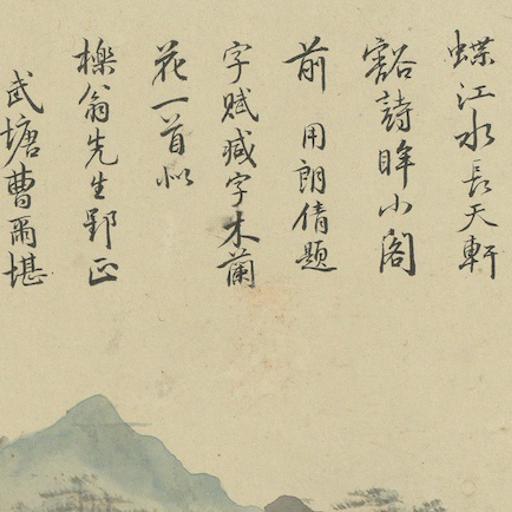 蝶江水長天軒
豁詩眸小閣
前 用朗倩題
字賦減字木蘭
花一首似
櫟翁先生郢正
武塘曹爾堪